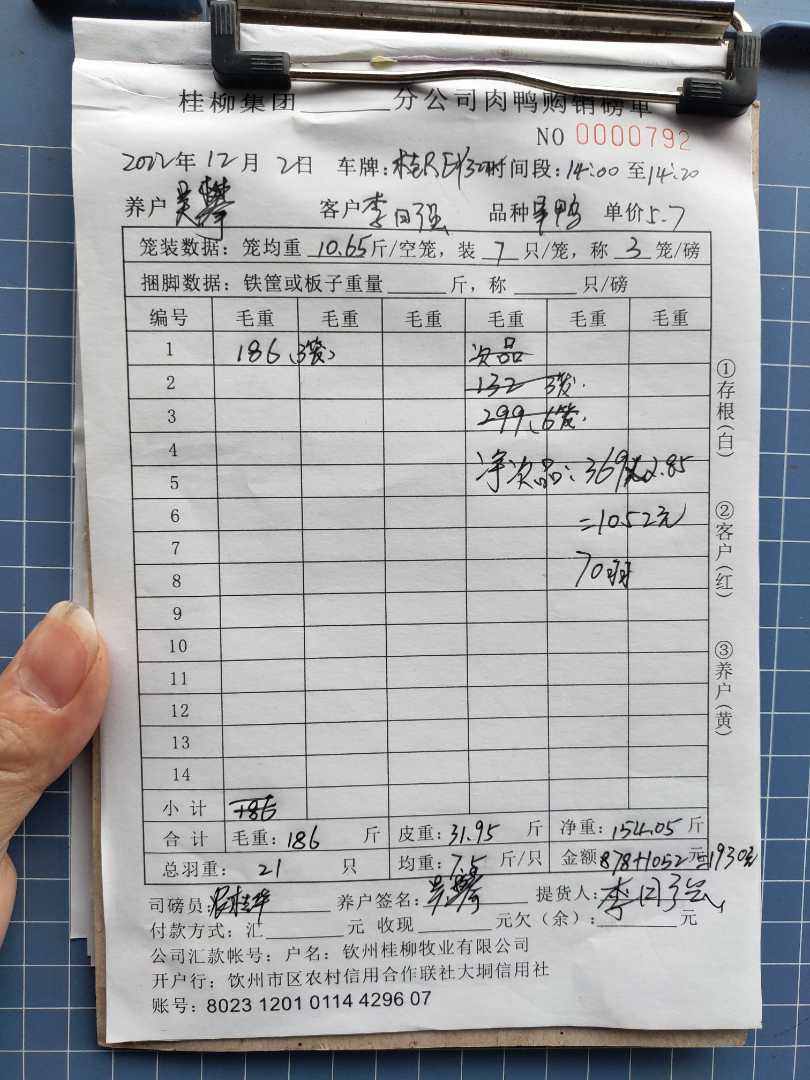 桂柳集团______分公司肉鸭购销磅单
NO 0000792
2022年12月2日 车牌: 时间段:14:00至14:20
养户 吴 客户 李日强 品种 鸭 单价5.7
笼装数据: 笼均重 10.65斤/空笼, 装 7 只/笼, 称 3 笼/磅
捆脚数据: 铁筐或板子重量______斤, 称______只/磅
编号 毛重 毛重 毛重 毛重 毛重 毛重
1 186(3笼) 次品
2 132 3笼.
3 299、6笼.
4
5 净次品: 369×2.85
6 =1052元
7
8 70羽
9
10
11
12
13
14
小计 186
合计 毛重: 186 斤 皮重: 31.95 斤 净重: 154.05 斤
总羽重: 21 只 均重: 7.5 斤/只 金额 878+1052元=1930元
司磅员: 养户签名: 吴 提货人: 李日强
付款方式: 汇______元 收现______元欠(余):______元
公司汇款帐号: 户名: 钦州桂柳牧业有限公司
开户行: 钦州市区农村信用合作联社大垌信用社
账号: 8023 1201 0114 4296 07
①存根(白)
②客户(红)
③养户(黄)